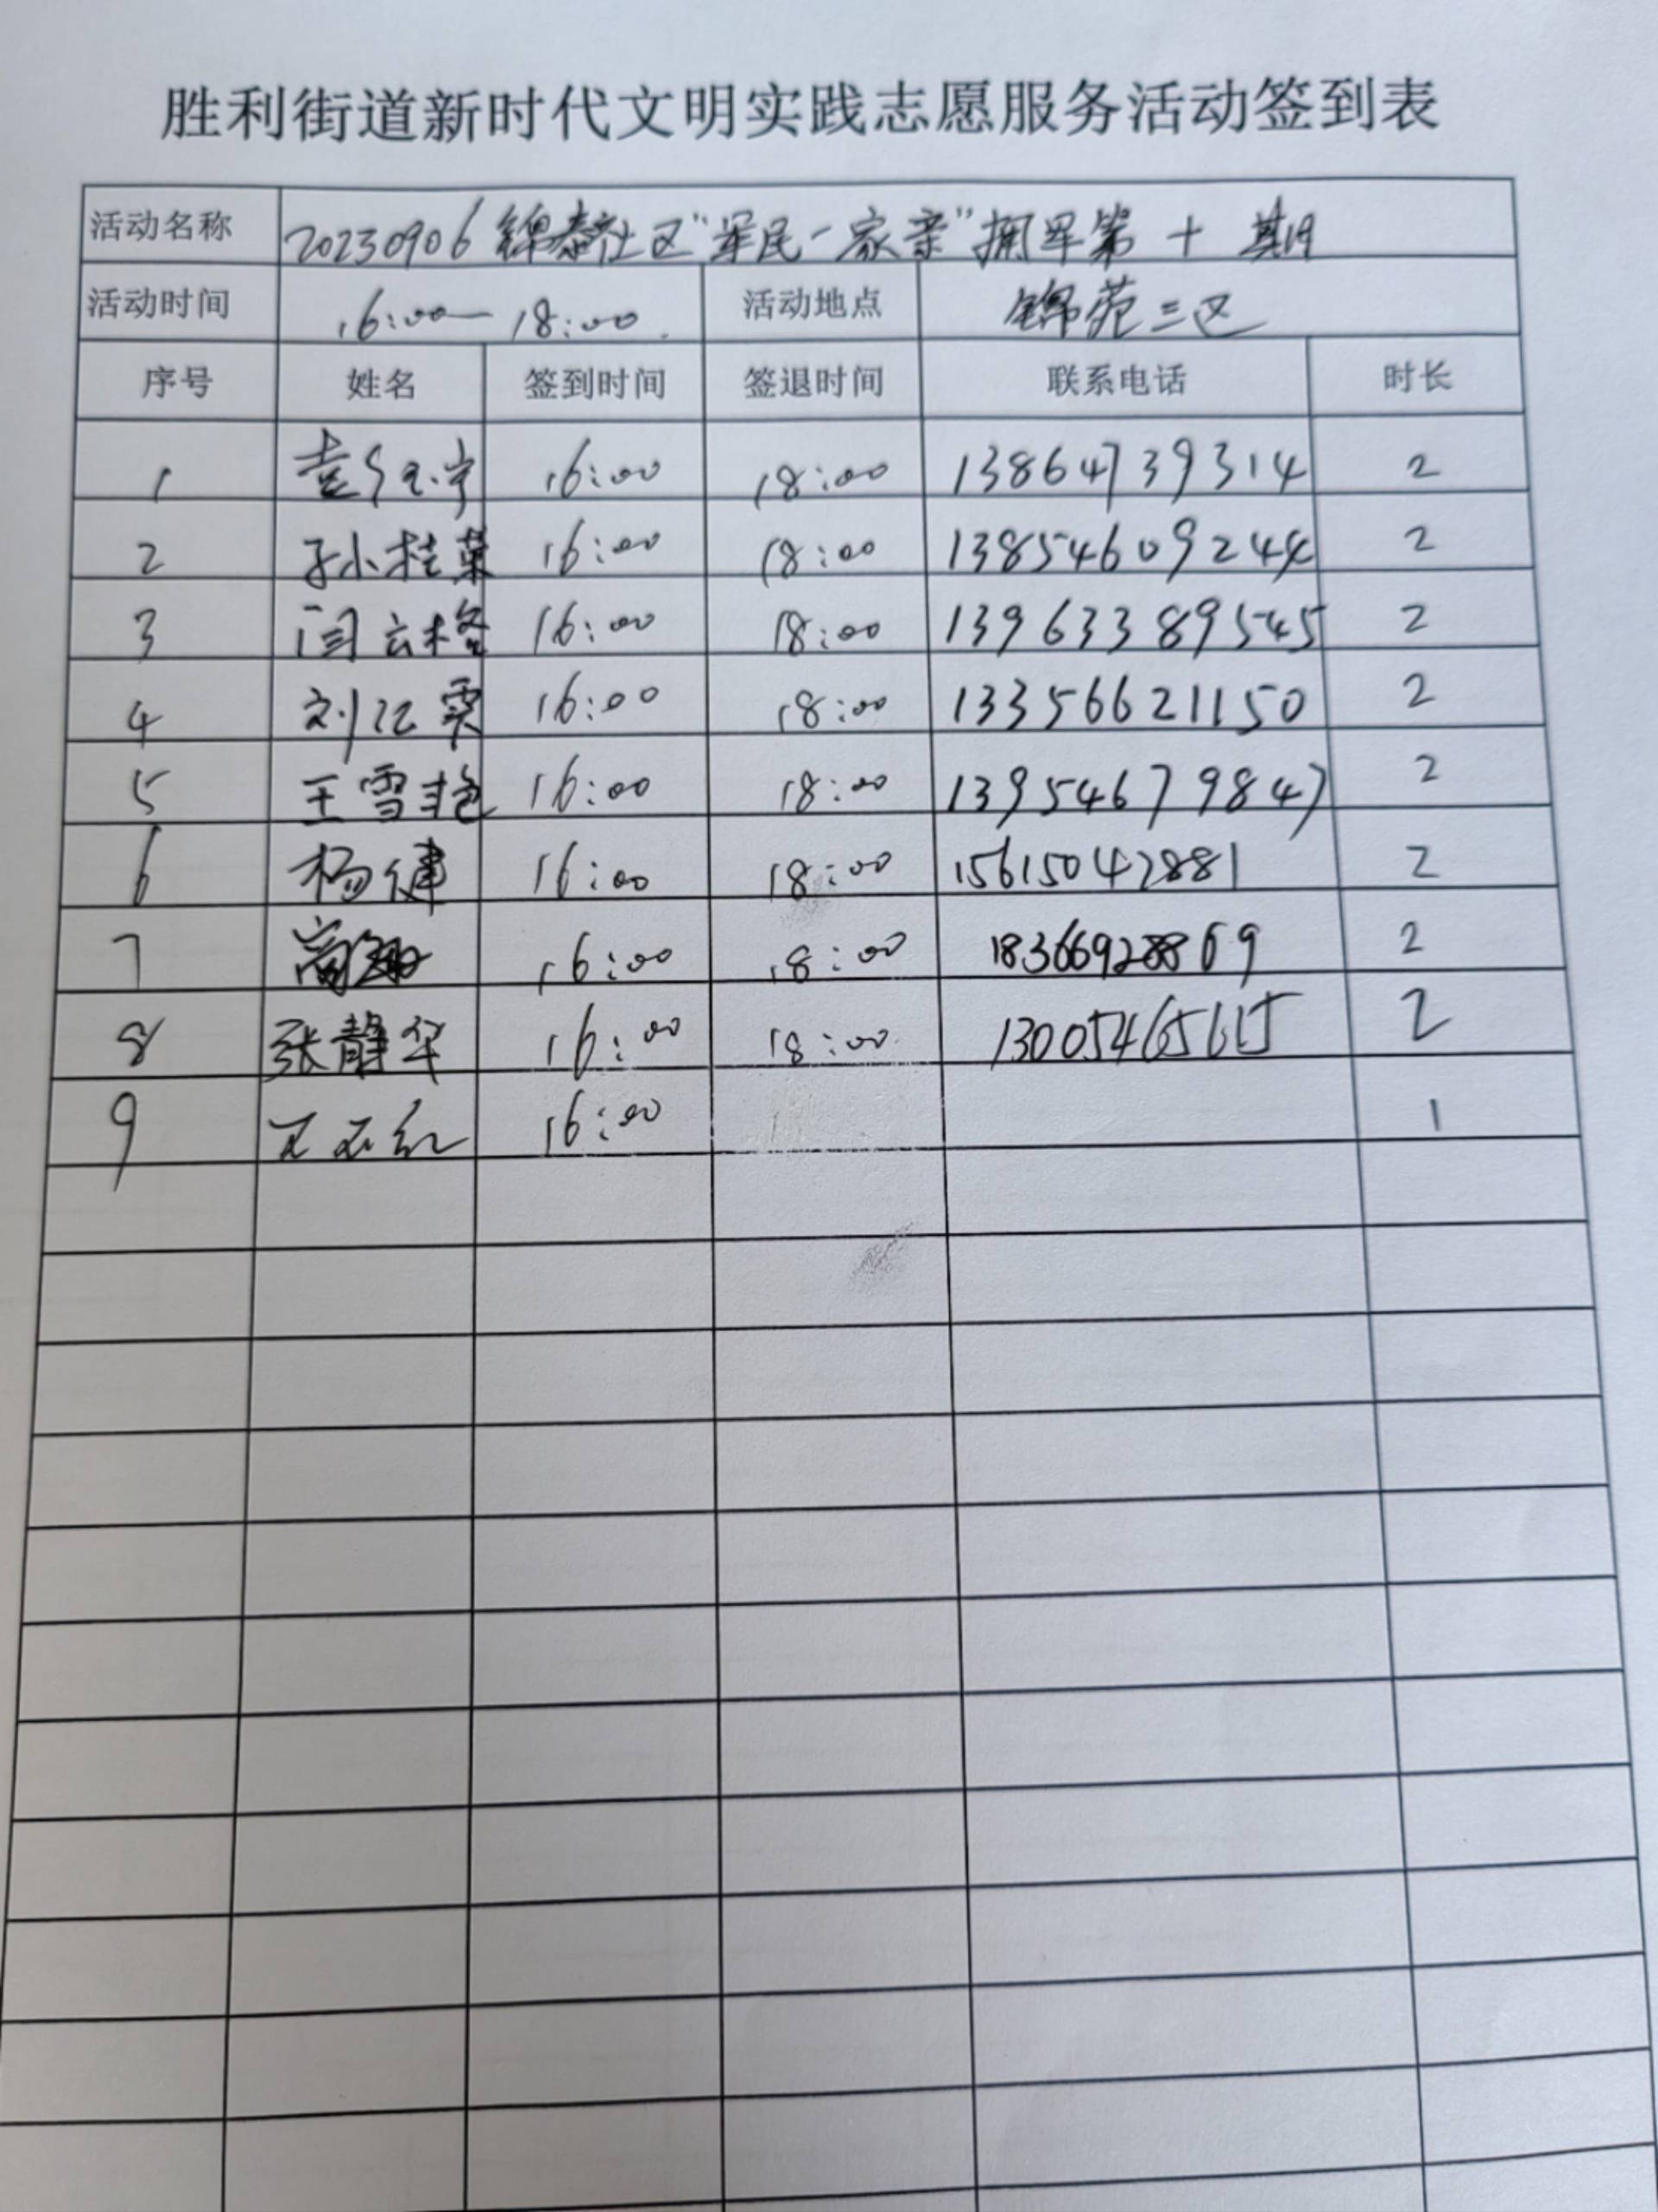 胜利街道新时代文明实践志愿服务活动签到表
活动名称 20230906锦泰社区“军民一家亲”拥军第十期
活动时间 16:00—18:00. 活动地点 锦苑三区
序号 姓名 签到时间 签退时间 联系电话 时长
1 16:00 18:00 13864739314 2
2 孙桂菊 16:00 18:00 13854609244 2
3 闫云格 16:00 18:00 13963389545 2
4 刘江霞 16:00 18:00 13356621150 2
5 王雪艳 16:00 18:00 13954679847 2
6 杨健 16:00 18:00 15615042881 2
7 高翔 16:00 18:00 18366928869 2
8 张静华 16:00 18:00 13005465615 2
9 16:00 1